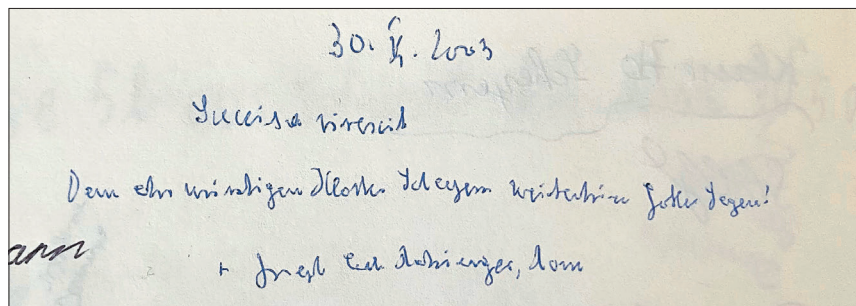 30. X. 2003
Succisa virescit
Dem ehrwürdigen Kloster Scheyern weiterhin Gottes Segen!
+ Joseph Card. Ratzinger, Rom